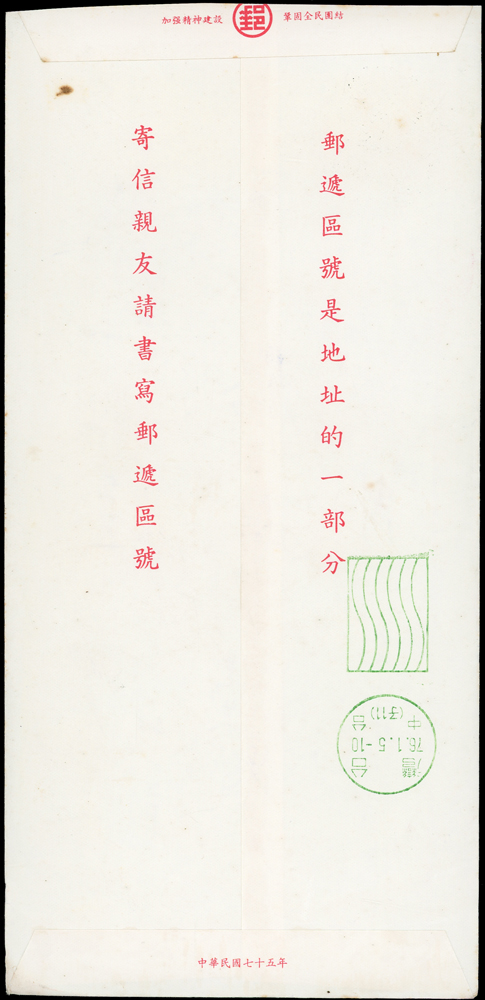 加强精神建設
郵
鞏固全民團結
郵遞區號是地址的一部分
寄信親友請書寫郵遞區號
台灣
76.1.5-10
台中
中華民國七十五年